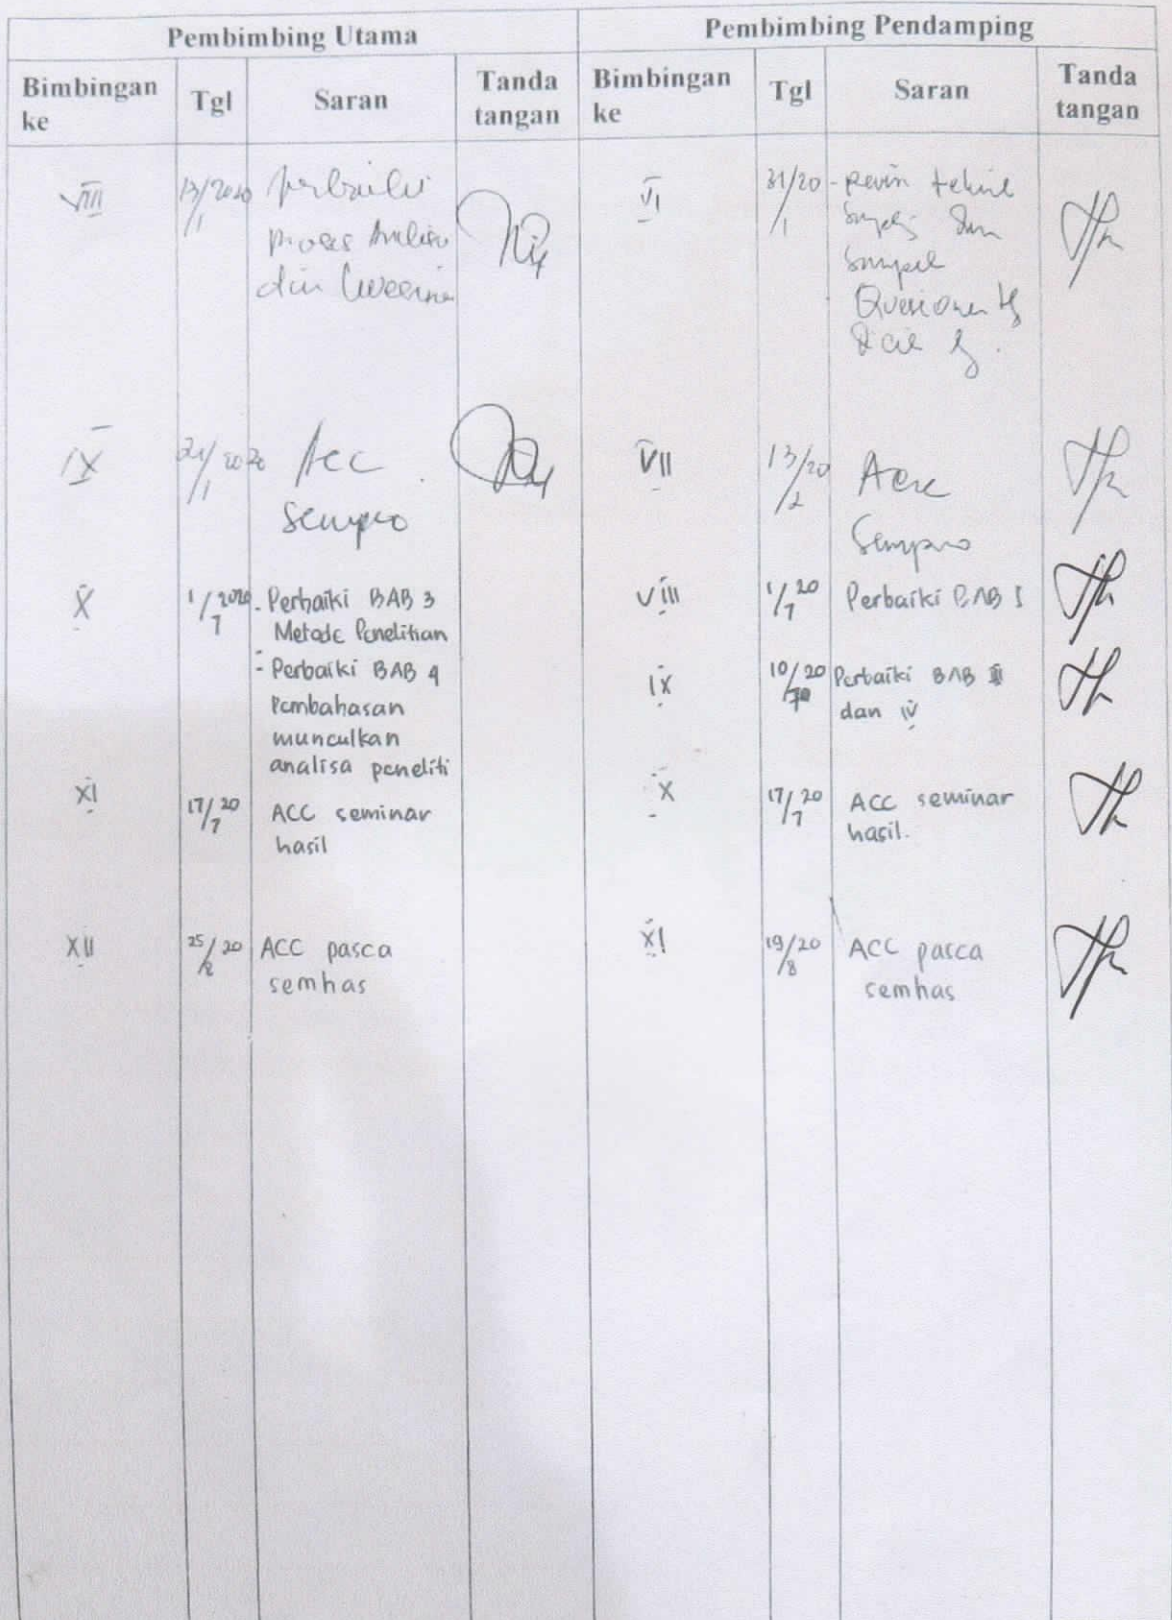 Pembimbing Utama
Pembimbing Pendamping
Bimbingan ke
Tgl
Saran
Tanda tangan
Bimbingan ke
Tgl
Saran
Tanda tangan
VIII
13/2020
/1
proses
VI
31/20
/1
IX
/2020
/1
Acc
sempro
VII
13/20
/2
Acc
Sempro
X
1/2020
7
- Perbaiki BAB 3
Metode Penelitian
- Perbaiki BAB 4
Pembahasan
munculkan
analisa peneliti
VIII
1/20
7
Perbaiki BAB I
IX
10/20
Perbaiki BAB
dan IV
XI
17/20
7
ACC seminar
hasil
X
17/20
7
ACC seminar
hasil.
XII
25/20
/8
ACC pasca
semhas
XI
19/20
/8
ACC pasca
semhas